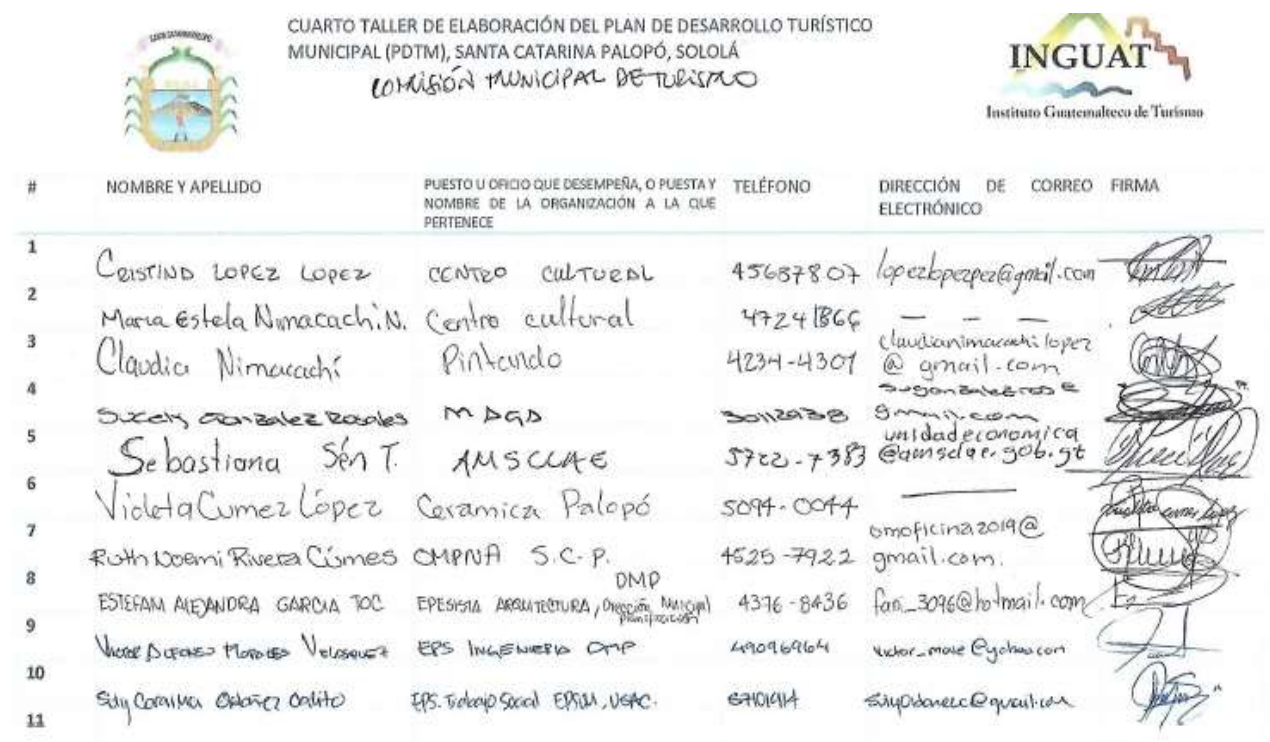 CUARTO TALLER DE ELABORACIÓN DEL PLAN DE DESARROLLO TURÍSTICO
MUNICIPAL (PDTM), SANTA CATARINA PALOPÓ, SOLOLÁ
COMISIÓN MUNICIPAL DE TURISMO
INGUAT
Instituto Guatemalteco de Turismo
# NOMBRE Y APELLIDO PUESTO U OFICIO QUE DESEMPEÑA, O PUESTA Y NOMBRE DE LA ORGANIZACIÓN A LA QUE PERTENECE TELÉFONO DIRECCIÓN DE CORREO ELECTRÓNICO FIRMA
1
CRISTINO LOPEZ LOPEZ CENTRO CULTURAL 45687807 lopezlopezpez@gmail.com
2
Maria Estela Nimacachi.N. Centro cultural 47241866 — — —
3
Claudia Nimacachí Pintando 4234-4301 claudianimacachilopez@gmail.com
4
Sucely Gonzalez Rosales MAGA 30112938 gmail.com
5
Sebastiana Sén T. AMSCLAE 5722-7383 unidadeconomica@amsclae.gob.gt
6
Violeta Cumez López Ceramica Palopó 5094-0044 —
7
Ruth Noemi Rivera Cúmes OMPNA S.C.P. 4525-7922 omoficina2019@gmail.com.
8
ESTEFANI ALEJANDRA GARCIA TOC EPESISTA ARQUITECTURA, Dirección Municipal Planificación DMP 4376-8436 fani_3096@hotmail.com
9
Victor Morales Velasquez EPS INGENIERIA DMP 49096964
10
EPS. Trabajo Social USAC.
11